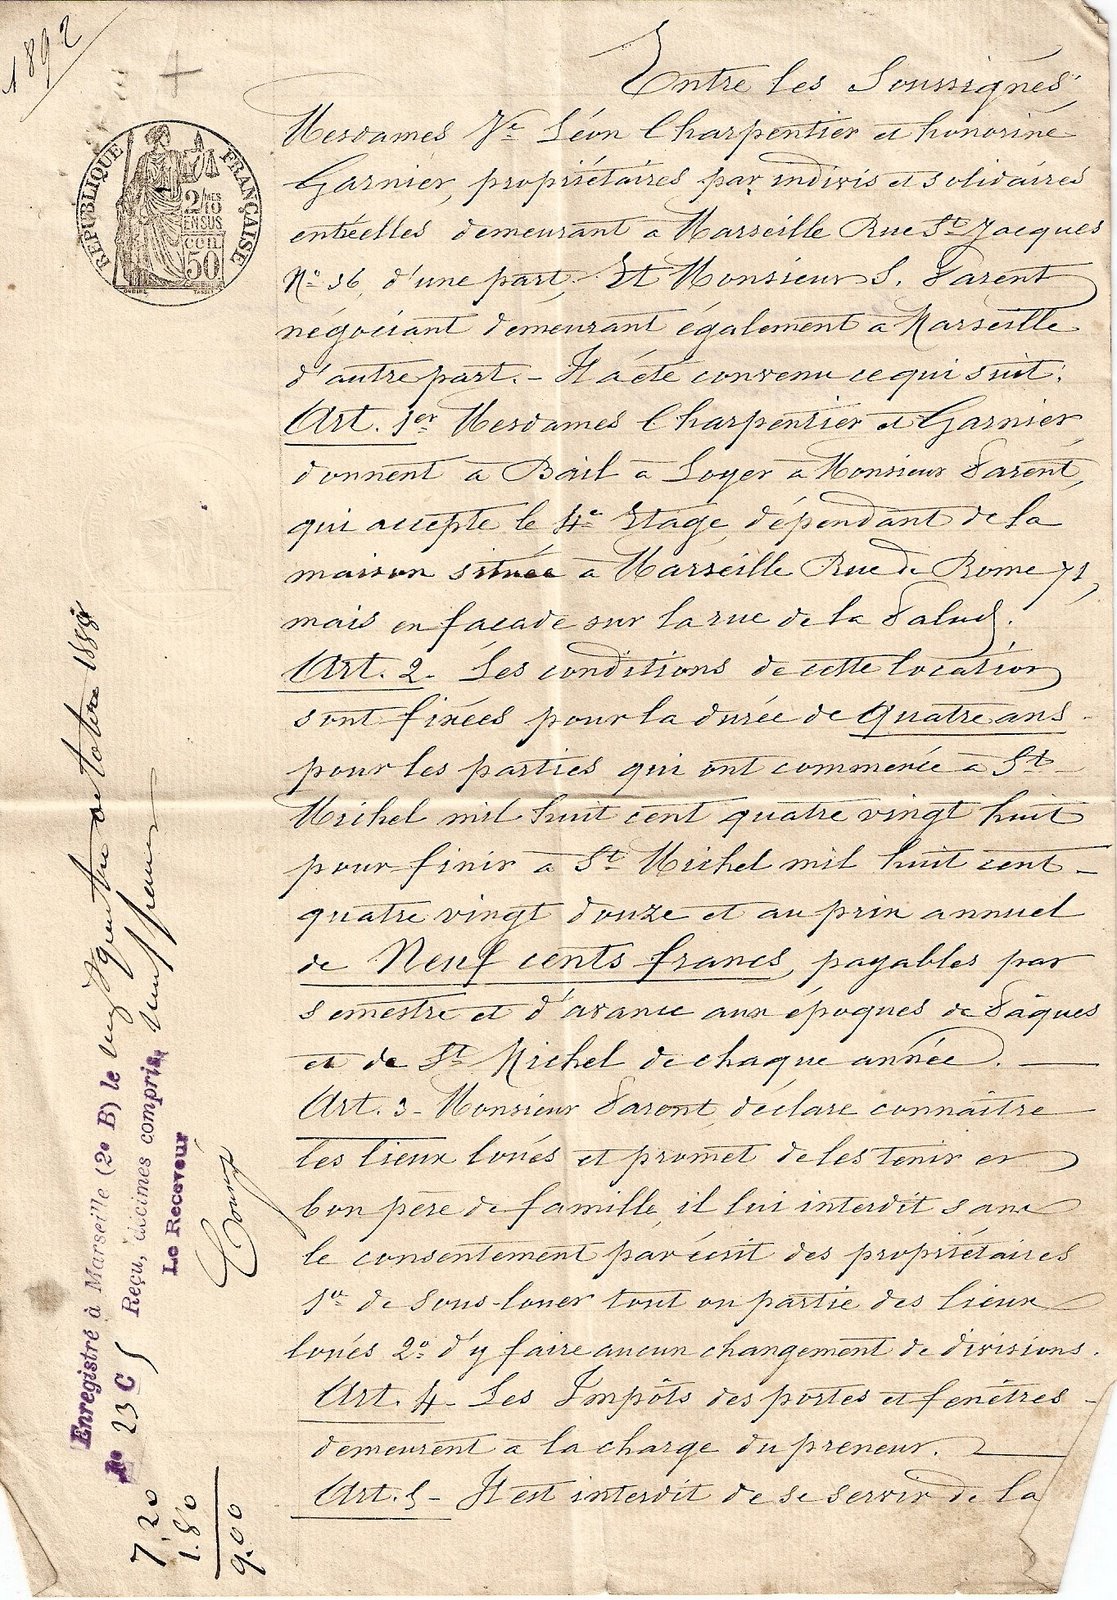 1892
RÉPUBLIQUE FRANÇAISE
2/10mes
EN SUS
cen
50
Entre les Soussignés
Mesdames Ve Léon Charpentier et honorine
Garnier, propriétaires par indivis et solidaires
entréelles demeurant à Marseille Rue St Jacques
No 56, d'une part, Et Monsieur S. Parent
négociant demeurant également à Marseille
d'autre part. - Il a été convenu ce qui suit:
Art. 1er Mesdames Charpentier et Garnier
donnent à Bail à Loyer à Monsieur Parent,
qui accepte le 4e Etage, dépendant de la
maison située à Marseille Rue de Rome 71,
mais en façade sur la rue de la Palud.
Art. 2. Les conditions de cette location
sont fixées pour la durée de quatre ans -
pour les parties qui ont commencé à St
Michel mil huit cent quatre vingt huit
pour finir à St Michel mil huit cent -
quatre vingt douze et au prix annuel
de Neuf cents francs, payables par
semestre et d'avance aux époques de Pâques
et de St Michel de chaque année.
Art. 3 - Monsieur Parent, déclare connaître
les lieux loués et promet de les tenir en
bon père de famille, il lui interdit sans
le consentement par écrit des propriétaires
1o de sous-louer tout ou partie des lieux
loués 2o d'y faire aucun changement de divisions.
Art. 4 - Les Impôts des portes et fenêtres -
demeurent à la charge du preneur.
Art. 5 - Il est interdit de se servir de la
Enregistré à Marseille (2e B) le vingt quatre octobre 1888
No 23 C Reçu, décimes compris, neuf francs
Le Receveur
7.20
1.80
9.00